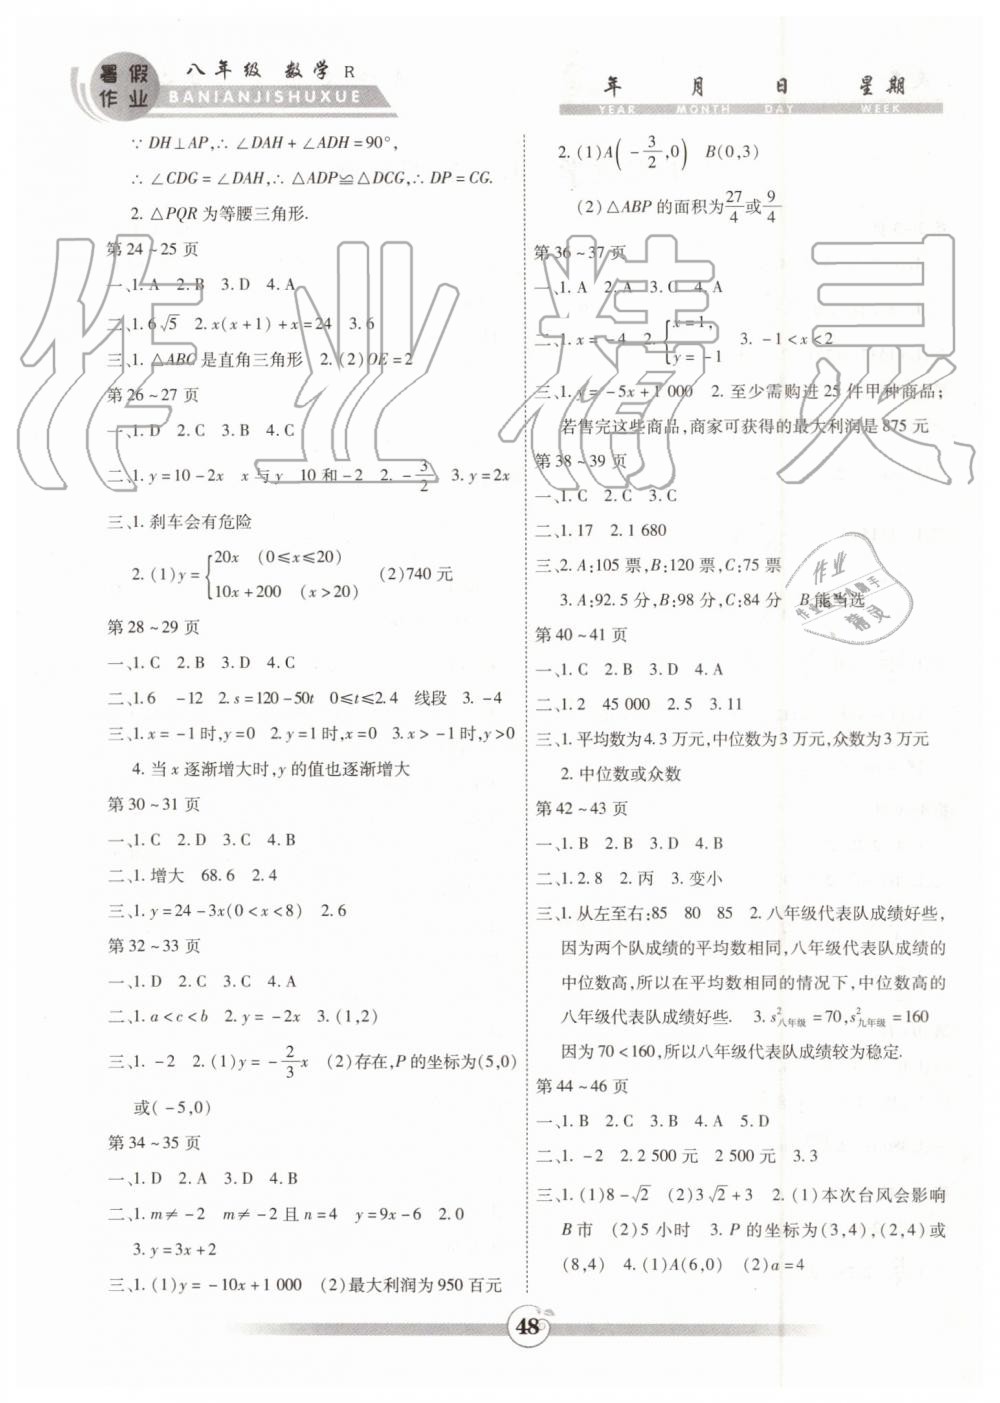 暑假
作业
八年级 数学 R
BANIANJISHUXUE
年 月 日 星期
YEAR MONTH DAY WEEK
∵ DH⊥AP,∴ ∠DAH+∠ADH=90°,
∴ ∠CDG=∠DAH,∴ △ADP≌△DCG,∴ DP=CG.
2. △PQR 为等腰三角形.
第 24~25 页
一、1. A 2. B 3. D 4. A
二、1. 6√5 2. x(x+1)+x=24 3. 6
三、1. △ABC 是直角三角形 2. (2)OE=2
第 26~27 页
一、1. D 2. C 3. B 4. C
二、1. y=10-2x x 与 y 10 和 -2 2. -3/2 3. y=2x
三、1. 刹车会有危险
2. (1)y={20x (0≤x≤20)
10x+200 (x>20) (2)740 元
第 28~29 页
一、1. C 2. B 3. D 4. C
二、1. 6 -12 2. s=120-50t 0≤t≤2.4 线段 3. -4
三、1. x=-1 时,y=0 2. y=1 时,x=0 3. x>-1 时,y>0
4. 当 x 逐渐增大时,y 的值也逐渐增大
第 30~31 页
一、1. C 2. D 3. C 4. B
二、1. 增大 68.6 2. 4
三、1. y=24-3x(0<x<8) 2. 6
第 32~33 页
一、1. D 2. C 3. C 4. A
二、1. a<c<b 2. y=-2x 3. (1,2)
三、1. -2 2. (1)y=-2/3x (2)存在,P 的坐标为(5,0)
或(-5,0)
第 34~35 页
一、1. D 2. A 3. D 4. B
二、1. m≠-2 m≠-2 且 n=4 y=9x-6 2. 0
3. y=3x+2
三、1. (1)y=-10x+1 000 (2)最大利润为 950 百元
2. (1)A(-3/2,0) B(0,3)
(2)△ABP 的面积为27/4或9/4
第 36~37 页
一、1. A 2. A 3. C 4. A
二、1. x=-4 2. {x=1,
y=-1 3. -1<x<2
三、1. y=-5x+1 000 2. 至少需购进 25 件甲种商品;
若售完这些商品,商家可获得的最大利润是 875 元
第 38~39 页
一、1. C 2. C 3. C
二、1. 17 2. 1 680
三、2. A:105 票,B:120 票,C:75 票
3. A:92.5 分,B:98 分,C:84 分 B 能当选
第 40~41 页
一、1. C 2. B 3. D 4. A
二、1. 2 45 000 2. 5 3. 11
三、1. 平均数为 4.3 万元,中位数为 3 万元,众数为 3 万元
2. 中位数或众数
第 42~43 页
一、1. B 2. B 3. D 4. B
二、1. 2.8 2. 丙 3. 变小
三、1. 从左至右:85 80 85 2. 八年级代表队成绩好些,
因为两个队成绩的平均数相同,八年级代表队成绩的
中位数高,所以在平均数相同的情况下,中位数高的
八年级代表队成绩好些. 3. s²八年级=70,s²九年级=160
因为 70<160,所以八年级代表队成绩较为稳定.
第 44~46 页
一、1. B 2. C 3. B 4. A 5. D
二、1. -2 2. 2 500 元 2 500 元 3. 3
三、1. (1)8-√2 (2)3√2+3 2. (1)本次台风会影响
B 市 (2)5 小时 3. P 的坐标为(3,4),(2,4)或
(8,4) 4. (1)A(6,0) (2)a=4
48
作业精灵
作业
精灵